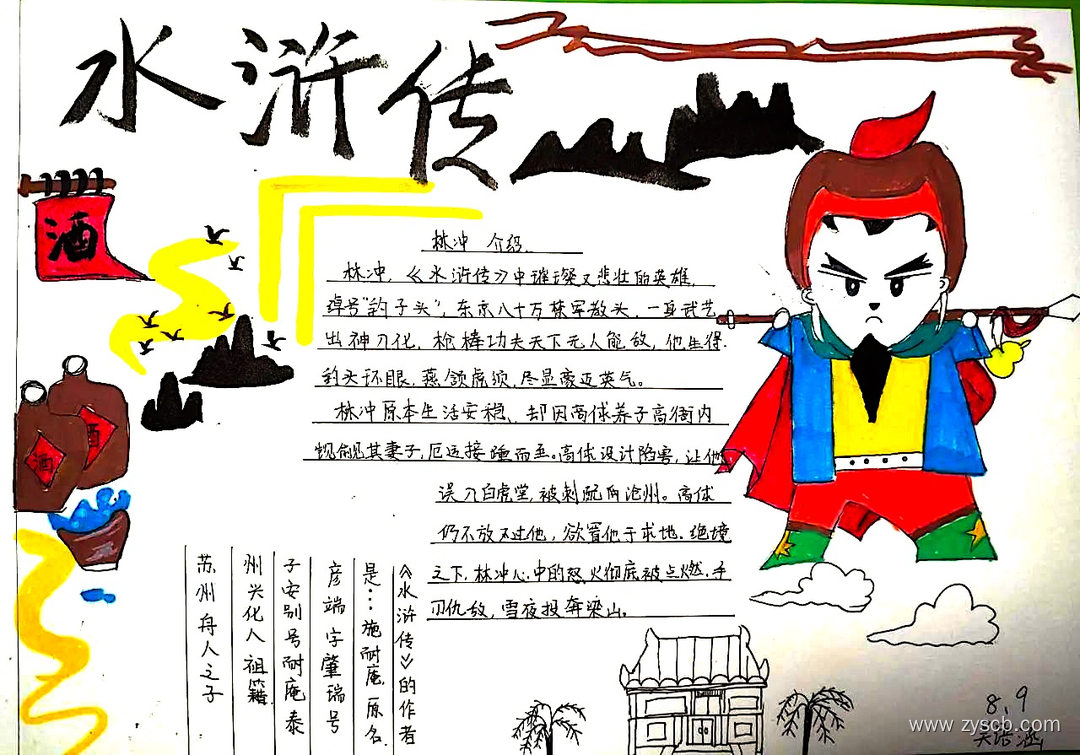 水浒传
酒
林冲 介绍
林冲,《水浒传》中璀璨又悲壮的英雄,
绰号"豹子头",东京八十万禁军教头,一身武艺
出神入化,枪棒功夫天下无人能敌,他生得
豹头环眼,燕领虎须,尽显豪迈英气。
林冲原本生活安稳、却因高俅养子高衙内
觊觎其妻子,厄运接踵而至。高俅设计陷害,让他
误入白虎堂,被刺配向沧州。高俅
仍不放过他,欲置他于求地.绝境
之下,林冲心中的怒火彻底被点燃,手
刃仇敌,雪夜投奔梁山。
酒
酒
《水浒传》的作者
是…施耐庵原名
彦端字肇瑞号
子安别号耐庵泰
州兴化人祖籍
苏州舟人之子
8.9
www.zyscb.com